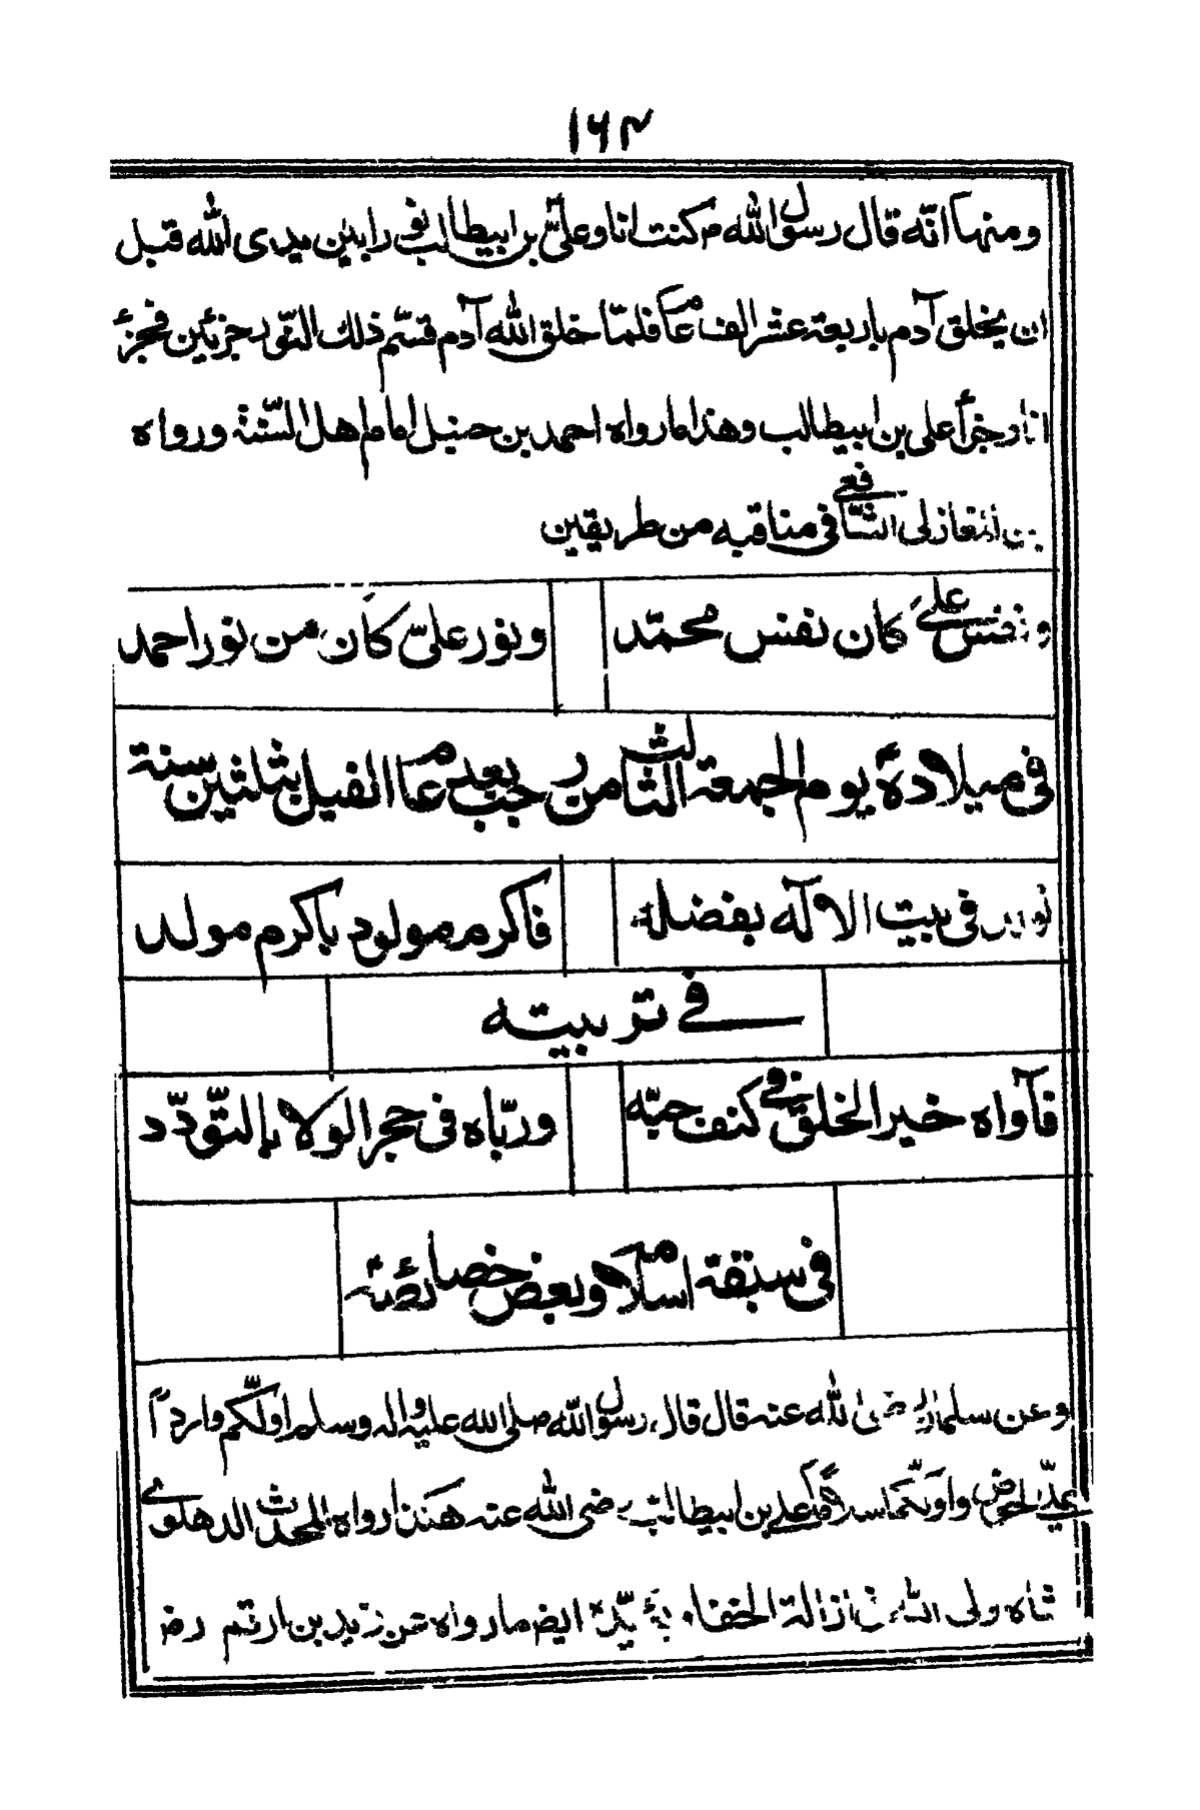 ١٦٣
ومنها انّه قال رسول الله م كنت انا وعليّ بن ابيطالب نورا بين يدى الله قبل
ان يخلق آدم باربعة عشر الف عاما فلمّا خلق الله آدم قسّم ذلك النّور جزئين فجزءٌ
انا وجزأ على بن ابيطالب وهذا ما رواه احمد بن حنبل امام اهل السّنة ورواه
بن المغازلى الشّافعي فى مناقبه من طريقين
ونفس علي كان نفس محمّد
ونور عليّ كان من نور احمد
فى ميلاده يوم الجمعة الثالث الثامن رجب بعد عام الفيل بثلثين سنة
فى بيت الاله بفضله
فاكرم مولود باكرم مولد
في تربيته
فآواه خير الخلق في كنف حبّه
وربّاه فى حجر الولا بالتّودّد
فى سبقة اسلامه وبعض خصائصه
وعن سلمان رضى الله عنه قال قال رسول الله صلى الله عليه واله وسلم اوّلكم واردًا
عليّ الحوض واوّلكم اسلاما علي بن ابيطالب رضى الله عنه هكذا رواه المحدث الدهلوي
شاه ولى الله فى ازالة الخفاء ايضا ما رواه عن زيد بن ارقم رض